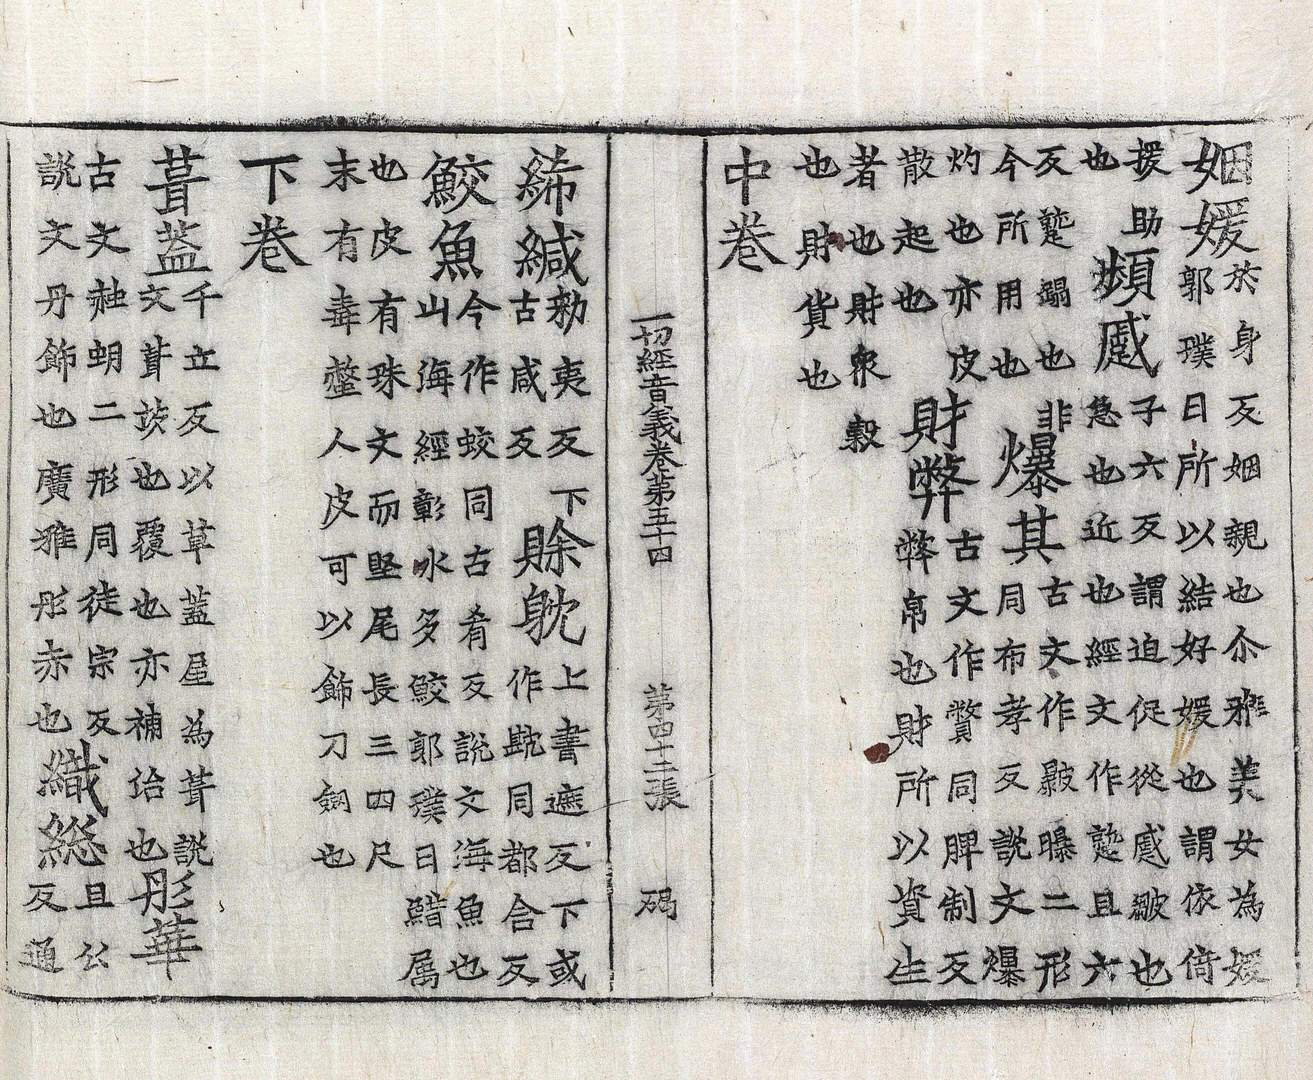 姻媛於身反姻親也尒雅美女為媛
郭璞曰所以結好媛也謂依倚
援助
也頻慼子六反謂迫促從慼皺也
急也近也經文作蹙且六
反蹙蹋也非
今所用也爆其古文作皸曝二形
同布孝反說文爆
灼也亦皮
散起也財弊古文作獘同脾制反
弊帛也財所以資生
者也財眾穀
也財貨也
中卷
一切經音義卷第五十四 第四十二張 碣
絺緘勑夷反下
古咸反賖躭上書遮反下或
作躭同都合反
鮫魚今作蛟同古肴反說文海魚也
山海經彰水多鮫郭璞曰鯌属
也皮有珠文而堅尾長三四尺
末有毒螫人皮可以飾刀劒也
下卷
葺蓋千立反以草蓋屋為葺說
文葺茨也覆也亦補治也彤華
古文赨蚒二形同徒宗反
說文丹飾也廣雅彤赤也織総且公
反通